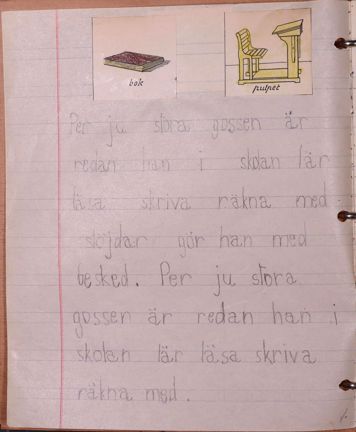 bok pulpet
Per ju stora gossen är
redan han i skolan lär
läsa skriva räkna med
slöjdar gör han med
besked. Per ju stora
gossen är redan han i
skolan lär läsa skriva
räkna med.